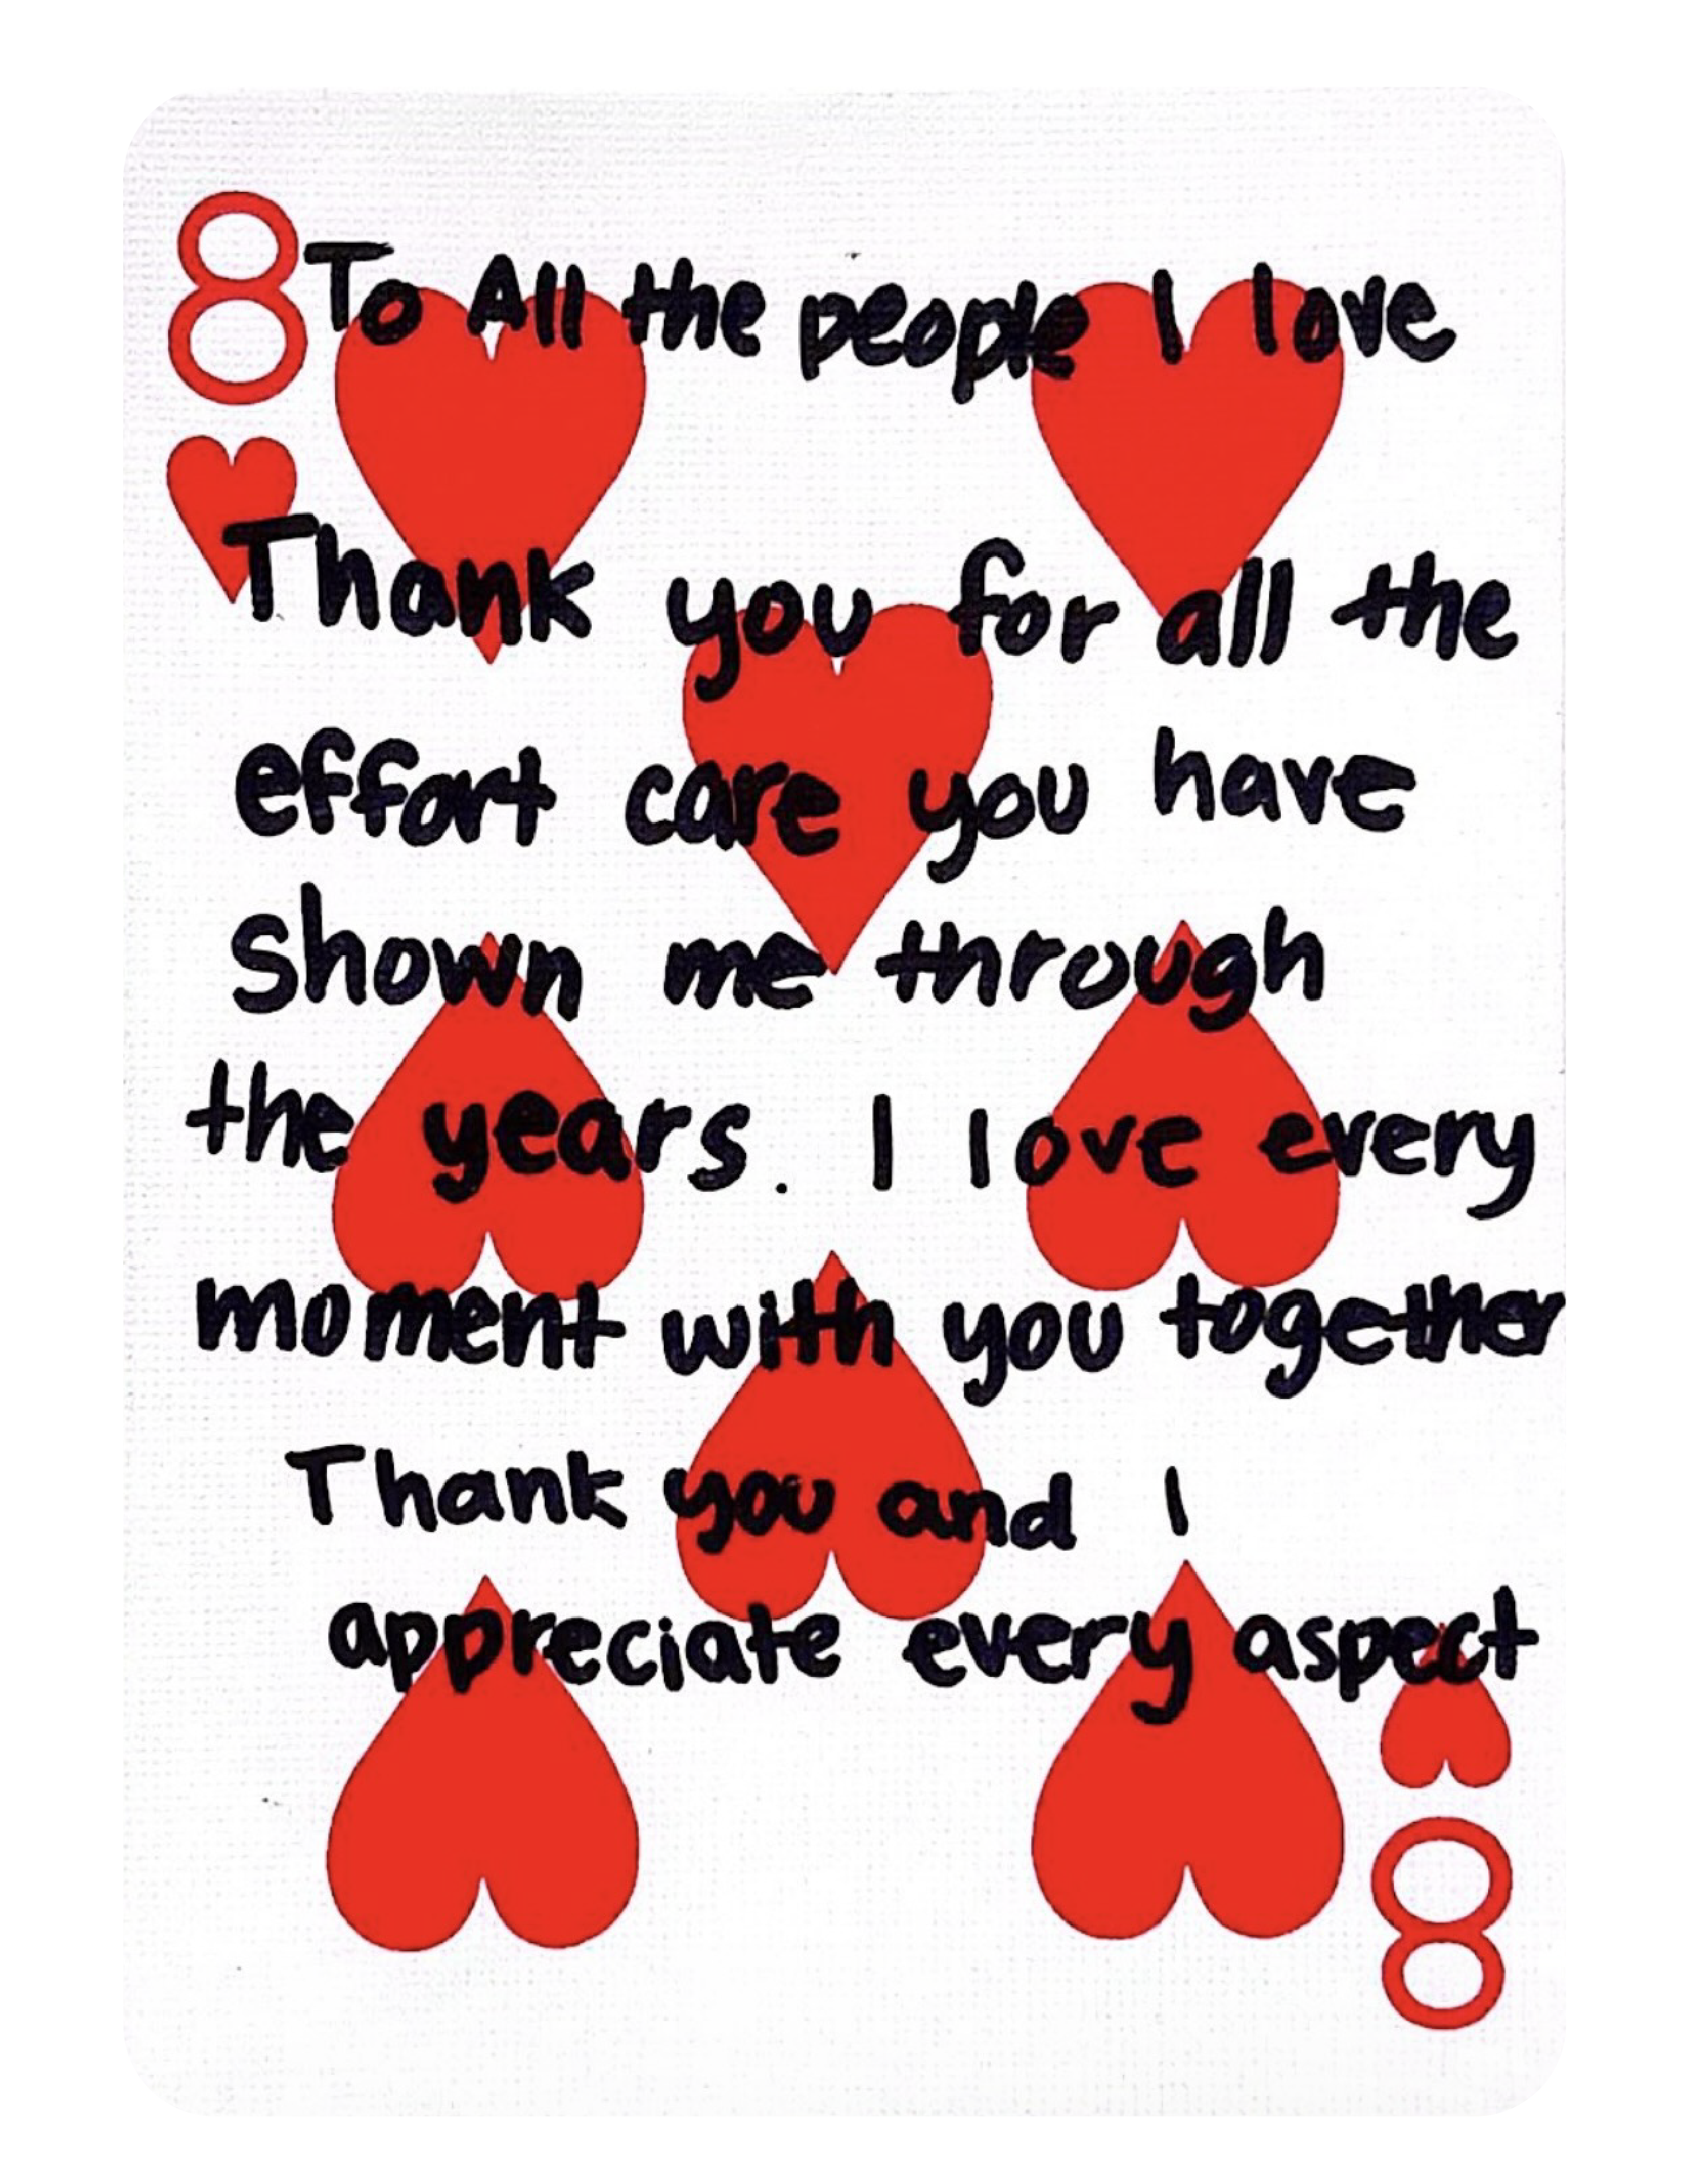 8
To All the people I love
Thank you for all the
effort care you have
Shown me through
the years. I love every
moment with you together
Thank you and I
appreciate every aspect
8